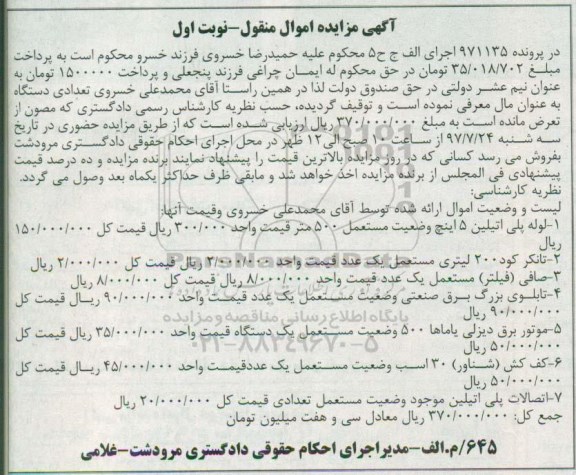 آگهی مزایده اموال منقول-نوبت اول
در پرونده ۹۷۱۱۳۵ اجرای الف ج ح۵ محکوم علیه حمیدرضا خسروی فرزند خسرو محکوم است به پرداخت
مبلغ ۳۵/۰۱۸/۷۰۲ تومان در حق محکوم له ایمان چراغی فرزند پنجعلی و پرداخت ۱۵۰۰۰۰۰ تومان به
عنوان نیم عشر دولتی در حق صندوق دولت لذا در همین راستا آقای محمدعلی خسروی تعدادی دستگاه
به عنوان مال معرفی نموده است و توقیف گردیده، حسب نظریه کارشناس رسمی دادگستری که مصون از
تعرض مانده است به مبلغ ۳۷۰/۰۰۰/۰۰۰ ریال ارزیابی شده است که از طریق مزایده حضوری در تاریخ
سه شنبه ۹۷/۷/۲۴ از ساعت ۱۰ صبح الی ۱۲ ظهر در محل اجرای احکام حقوقی دادگستری مرودشت
بفروش می رسد کسانی که در روز مزایده بالاترین قیمت را پیشنهاد نمایند برنده مزایده و ده درصد قیمت
پیشنهادی فی المجلس از برنده مزایده اخذ خواهد شد و مابقی ظرف حداکثر یکماه بعد وصول می گردد.
نظریه کارشناسی:
لیست و وضعیت اموال ارائه شده توسط آقای محمدعلی خسروی وقیمت آنها:
۱-لوله پلی اتیلین ۵ اینچ وضعیت مستعمل ۵۰۰ متر قیمت واحد ۳۰۰/۰۰۰ ریال قیمت کل ۱۵۰/۰۰۰/۰۰۰
ریال
۲-تانکر کود۲۰۰ لیتری مستعمل یک عدد قیمت واحد ۲/۰۰۰/۰۰۰ ریال قیمت کل ۲/۰۰۰/۰۰۰ ریال
۳-صافی (فیلتر) مستعمل یک عدد قیمت واحد ۸/۰۰۰/۰۰۰ ریال قیمت کل ۸/۰۰۰/۰۰۰ ریال
۴-تابلوی بزرگ برق صنعتی وضعیت مستعمل یک عدد قیمت واحد ۹۰/۰۰۰/۰۰۰ ریال قیمت کل
۹۰/۰۰۰/۰۰۰ ریال
۵-موتور برق دیزلی یاماها ۵۰۰ وضعیت مستعمل یک دستگاه قیمت واحد ۳۵/۰۰۰/۰۰۰ ریال قیمت کل
۵۰/۰۰۰/۰۰۰ ریال
۶-کف کش (شناور) ۳۰ اسب وضعیت مستعمل یک عددقیمت واحد ۴۵/۰۰۰/۰۰۰ ریال قیمت کل
۵۰/۰۰۰/۰۰۰ ریال
۷-اتصالات پلی اتیلین موجود وضعیت مستعمل تعدادی قیمت کل ۲۰/۰۰۰/۰۰۰ ریال
جمع کل: ۳۷۰/۰۰۰/۰۰۰ ریال معادل سی و هفت میلیون تومان
۶۴۵/م.الف-مدیراجرای احکام حقوقی دادگستری مرودشت-غلامی
پایگاه اطلاع رسانی مناقصه و مزایده
۰۲۱-۸۸۳۴۹۶۷۰-۵